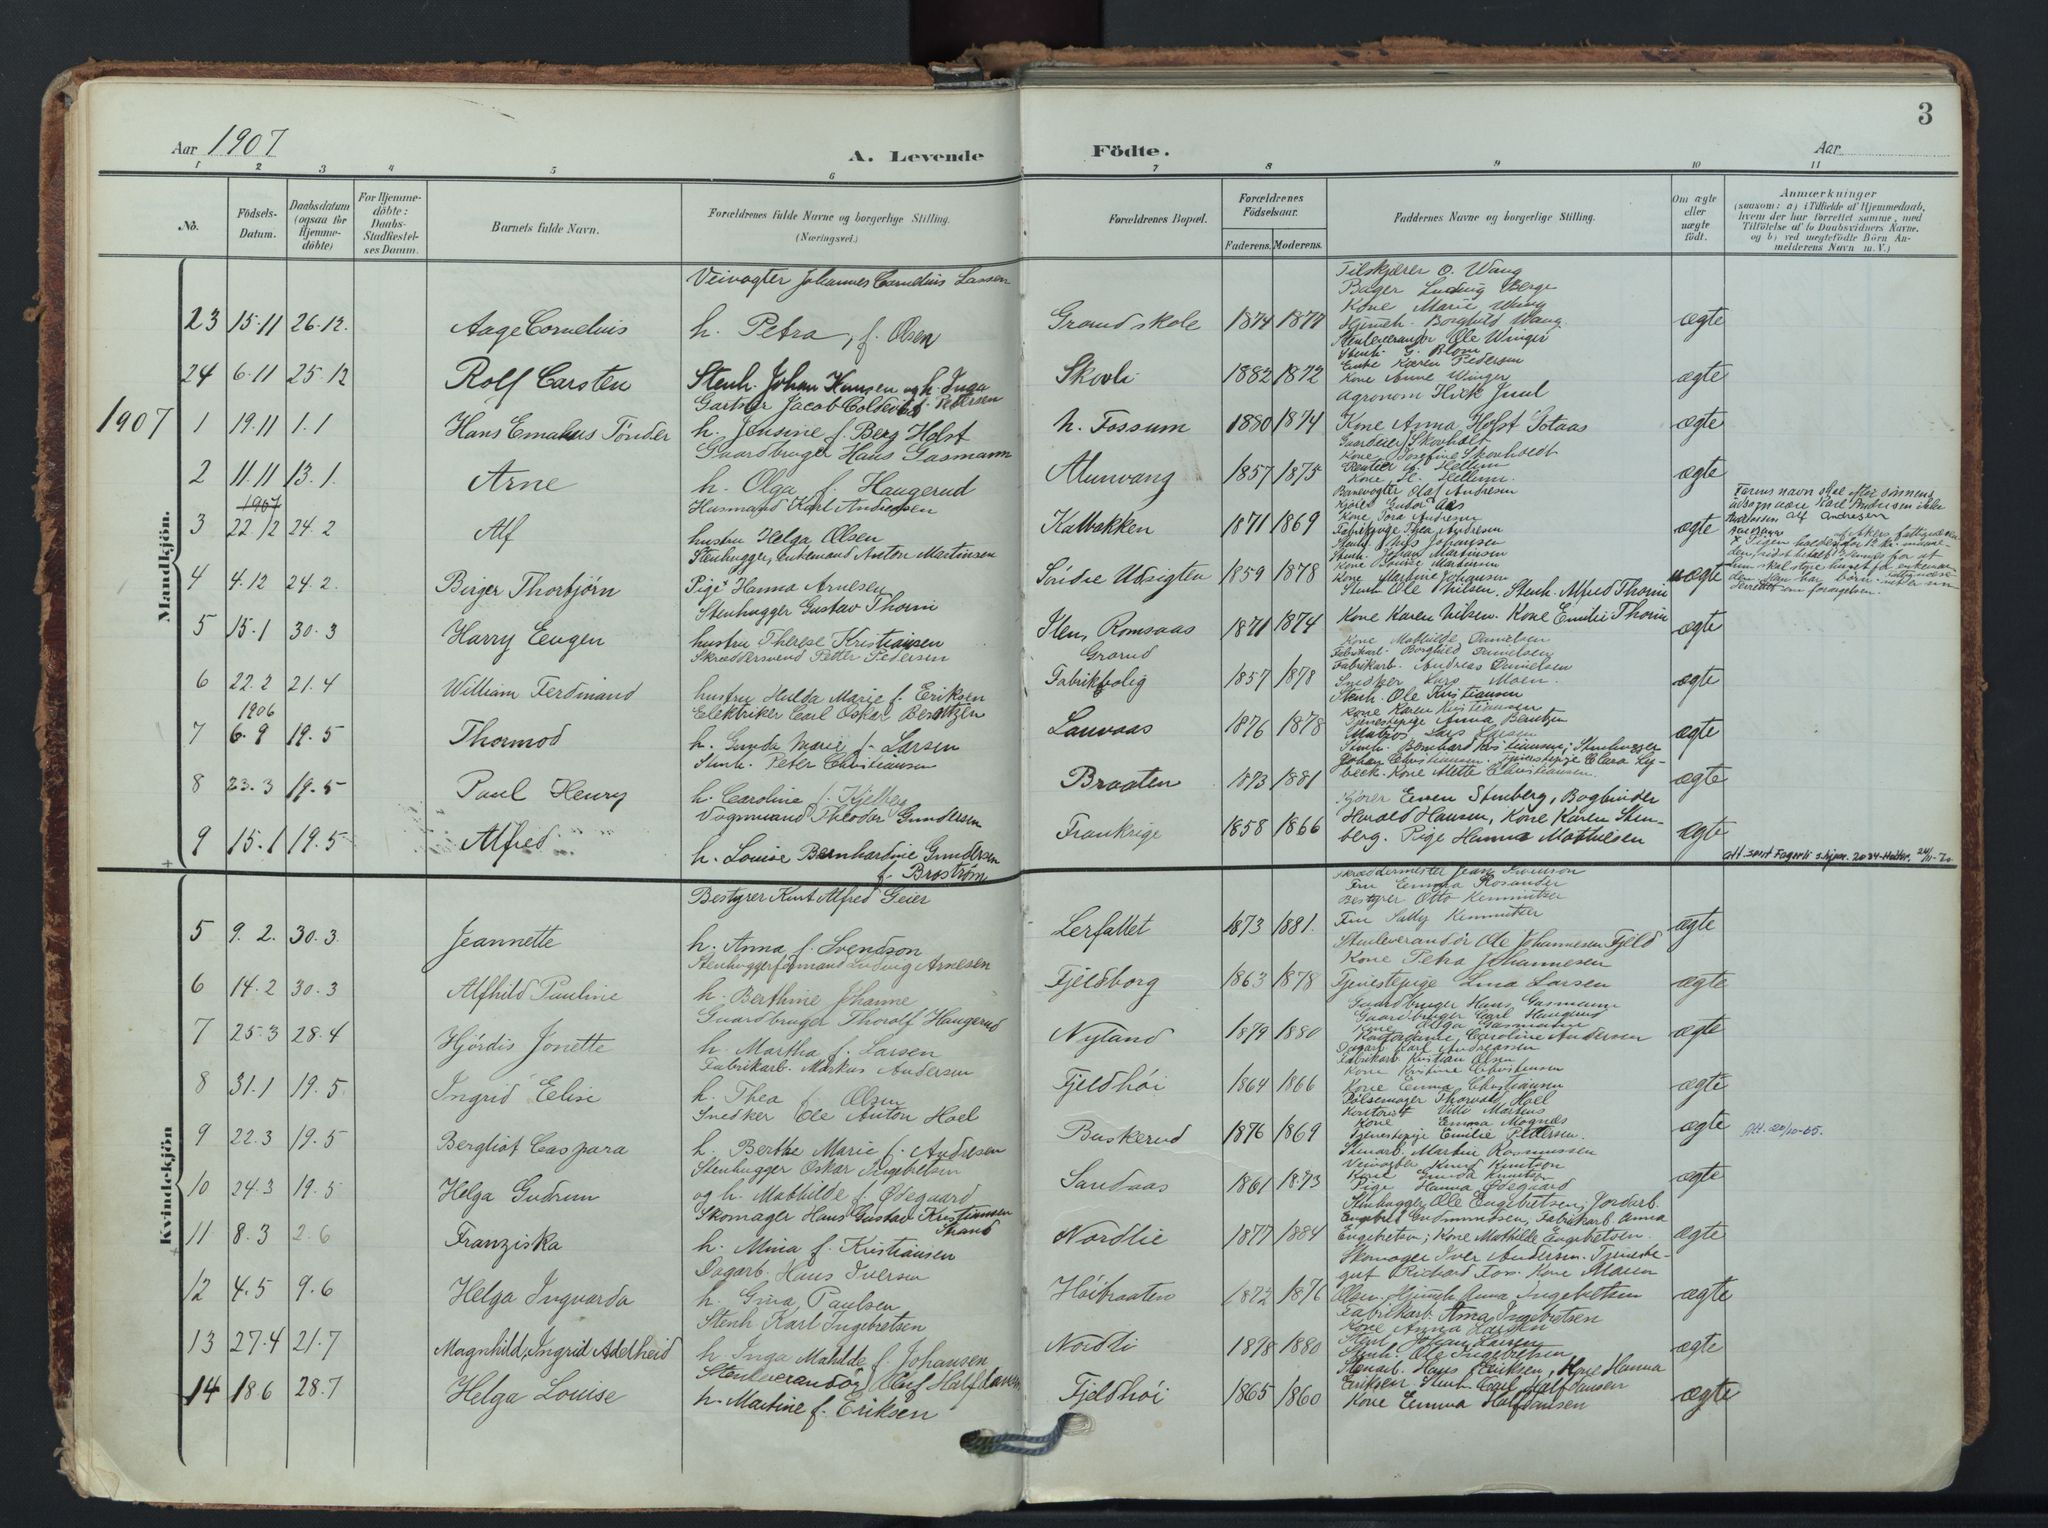 3
Aar 1907
A. Levende Födte.
Aar
1 2 3 4 5 6 7 8 9 10 11
No.
Födsels-Datum.
Daabsdatum (ogsaa for Hjemmedöbte)
For Hjemmedöbte: Daabs-Stadfæstelses Datum.
Barnets fulde Navn.
Forældrenes fulde Navne og borgerlige Stilling. (Næringsvei.)
Forældrenes Bopæl.
Forældrenes Födselsaar.
Faderens. Moderens.
Faddernes Navne og borgerlige Stilling.
Om ægte eller uægte födt.
Anmærkninger
(saasom: a) i Tilfælde af Hjemmedaab, hvem der har forrettet samme, med Tilföielse af to Daabsvidners Navne. og b) ved uegtefödte Börn Anmelderens Navn m. V.)
Mandkjön.
Veivogter Johannes Cornelius Lassen
Tilskjærer O. Wang
Bager Ludvig Berge
Kone Marie Wang
23 15.11 26.12. Aage Cornelius h. Petra, f. Olsen Grorud skole 1874 1877 Hjemh. Borghild Wang. ægte
Stenleverandør Ole Winger
Stenh. G. Blom
Enke Karen Pedersen
24 6.11 25.12 Rolf Carsten Stenh. Johan Hansen og h. Inga f. Pettersen Skovli 1882 1872 Kone Anne Winger ægte
1907
Gartner Jacob Coldevin
Agronom Juul
1 19.11 1.1 Hans Tönder h. Jensine f. Berg Holst n. Fossum 1880 1874 Kone Anna Holst ægte
Gaardbruger Hans Gasmann
Kone Josefine
2 11.11 13.1. Arne h. Olga f. Haugerud Alunvang 1857 1875 ægte
1907
Husmand Karl Andresen
Banevogter Olaf Andresen
3 22/2 24.2 Alf hustru Helga Olsen Kalbakken 1871 1869 Kone Tora Andresen ægte
Fabrikpige Thea Andresen
Stenhugger, enkemand Anton Martinsen
Stenh. Johan Martinsen
4 4.12 24.2. Birger Thorbjörn Pige Hanna Arnesen Söndre Udsigten 1859 1878 Kone Martine Johansen uægte
Stenh. Ole Nilsen, Stenh. Alfred Thorin
Stenhugger Gustav Thorin
5 15.1 30.3 Harry Eugen hustru Therese Kristiansen Sten, Romsaas Grorud 1871 1874 Kone Karen Nilsen. Kone Emilie Thorin ægte
Skræddersvend Petter Pedersen
Kone Mathilde Danielsen
Fabrikarb. Borghild Danielsen
Fabrikarb. Andreas Danielsen
6 22.2 21.4 William Ferdinand hustru Hulda Marie f. Eriksen Fabrikbolig 1857 1878 Snedker Lars Moen. ægte
Stenh. Ole Kristiansen
1906
Elektriker Carl Oskar Berntzen
Kone Karen Kristiansen
Tjenestepige Anna Berntzen
7 6.9 19.5 Thormod h. Gunda Marie f. Larsen Lauvaas 1876 1878 Matros Lars Larsen ægte
Stenh. Peter Christiansen
Stenh. Bernhard Kristiansen; Stenhugger
Johan Christiansen. Tjenestepige Clara Lybeck. Kone Alette Christiansen.
8 23.3 19.5 Paul Henry h. Caroline f. Kjelberg Braaten 1873 1881 ægte
Vognmand Theodor Gundersen
Kjører Even Stenberg, Bogbinder
Harald Hansen, Kone Karen Stenberg. Pige Hanna Mathiesen
9 15.1 19.5 Alfred h. Louise Bernhardine Gundersen f. Broström Frankrige 1858 1866 ægte
Kvindekjön
Bestyrer Kurt Alfred Geier
Skræddermester Jean Svenson
Fru Emma Rosander
Bestyrer Otto Kemnitzer
5 9.2. 30.3. Jeannette h. Anna f. Svendson Lerfallet 1873 1881. Fru Sally Kemnitzer ægte
Stenhuggerformand Ludvig Arnesen
Stenleverandör Ole Johannesen Fjeld
Kone Petra Johannesen
6 14.2 30.3 Alfhild Pauline h. Berthine Johanne Fjeldborg 1863 1878 Tjenestepige Lina Larsen ægte
Gaardbruger Thorolf Haugerud
Gaardbruger Hans Gasmann
Gaardbruger Carl Haugerud
Kone Olga Gasmann
7 25.3 28.4 Hjördis Jonette h. Martha f. Larsen Nyland 1879 1880 Kontordame, Caroline Andersen ægte
Fabrikarb. Markus Andersen
Fabrikarb. Kristian Olsen
Kone Kristine Christensen
8 31.1 19.5 Ingrid Elise h. Thea f. Olsen Fjeldhöi 1864 1866 Kone Emma Christiansen ægte
Snedker Ole Anton Hoel
Pölsemager Thorvald Hoel
Kone Emma Magnæs
9 22.3 19.5 Bergliot Caspara h. Berthe Marie f. Andresen Buskerud 1876 1869 Tjenestepige Emilie Pedersen. ægte
Stenhugger Oskar Ingebretsen
Stenarb. Martin Rasmussen
Veivogter Knud Knutson
Kone Gunda Knutson
10 24.3 19.5 Helga Gudrun og h. Mathilde f. Ødegaard Sandaas 1861 1873 Pige Hanna Ødegaard ægte
Skomager Hans Gustav Kristiansen Strand
Stenhugger Ole Engebretsen; Jordarb.
Engebret Gudmundsen, Fabrikarb. Anna
11 8.3 2.6 Franziska h. Mina f. Kristiansen Nordlie 1877 1884 Engebretsen; Kone Mathilde Engebretsen. ægte
Dagarb. Hans Iversen
Skomager Iver Andersen. Tjenestegut Richard Foss. Kone Maren
12 4.5 9.6 Helga Ingvarda h. Gina Paulsen Höibraaten 1872 1876 Olsen. Hjemh. Anna Ingebretsen ægte
Stenh Karl Ingebretsen
Fabrikarb. Anna Ingebretsen
Kone Anna Larsen
Stenh. Johan Larsen
13 27.4 21.7 Magnhild, Ingrid Adelheid h. Inga Mathilde f. Johansen Nordli 1878 1880 Stenh. Ole Ingebretsen ægte
Stenleverandör Oluf Halfdansen
Stenarb. Hans Eriksen, Kone Hanna
Eriksen. Stenh. Carl Halfdansen
14 18.6 28.7 Helga Louise h. Martine f. Eriksen Fjeldhöi 1865 1860 Kone Emma Halfdansen ægte